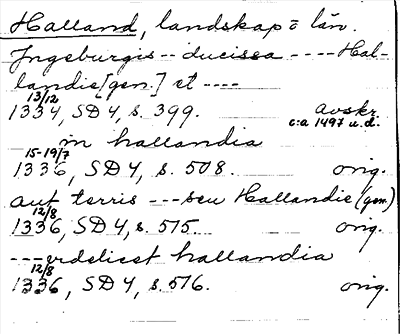 Halland, landskap o län.
Ingeburgis -- ducissa ---- Hal-
landie [gen.] et ----
13/12
1334, SD 4, s. 399. Avskr.
c:a 1497 u.d.
in hallandia
15-19/7
1336, SD 4, s. 508. orig.
aut terris --- seu Hallandie (gen.)
12/8
1336, SD 4, s. 515. orig.
--- videlicet hallandia
12/8
1336, SD 4, s. 516. orig.